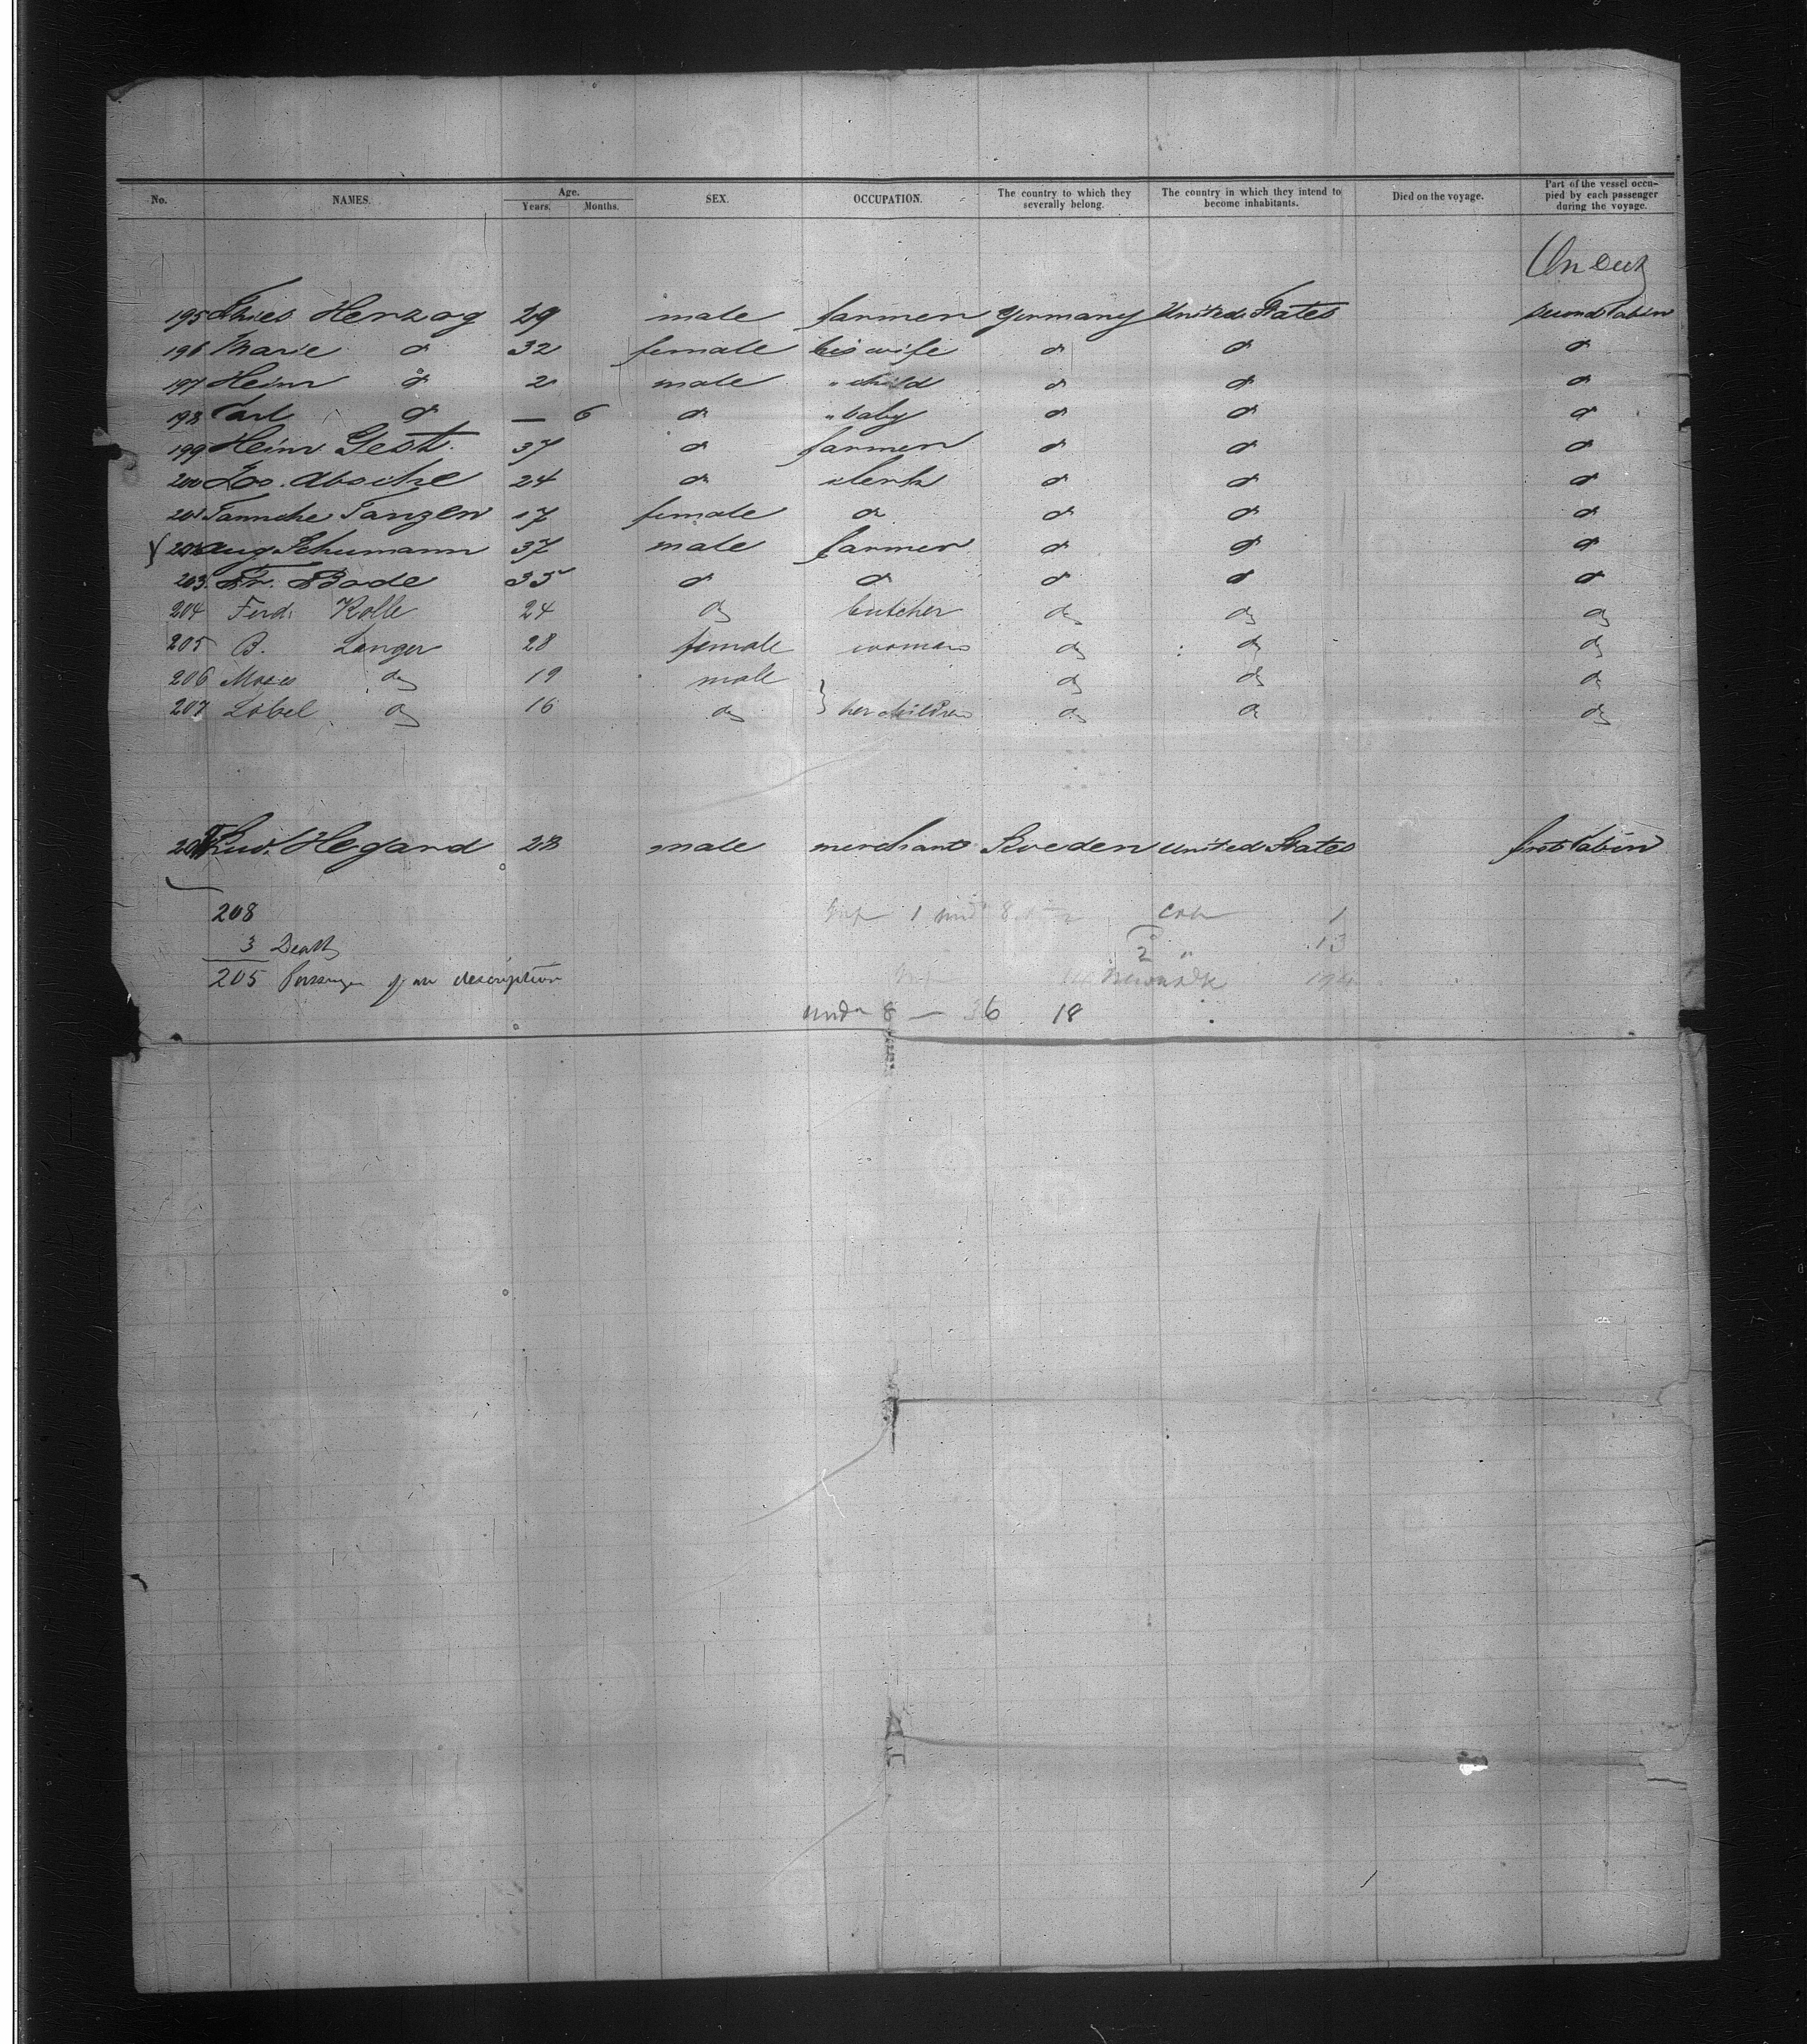 No. NAMES. Age. Years. Months. SEX. OCCUPATION. The country to which they severally belong. The country in which they intend to become inhabitants. Died on the voyage. Part of the vessel occupied by each passenger during the voyage.
On Deck
195 Thies Herzog 29 male farmer Germany United States second Cabin
196 Marie do 32 female his wife do do do
197 Heinr do 2 male " child do do do
198 Carl do — 6 do " baby do do do
199 Heinr. Gesti. 37 do farmer do do do
200 24 do clerk do do do
201 Tanzen 17 female do do do do
202 Aug Schumann 37 male farmer do do do
203. Fr. Bode 35 do do do do do
204 Ferd. Kolle 24 do butcher do do do
205 B. Langer 28 female woman do do do
206 Moses do 19 male do do do
207 Löbel do 16 do } her children do do do
208 Hegard 28 male merchant Sweden United States first Cabin
208
3 Death
205 Passenger description
1 13
2 "
under 8 — 36 18